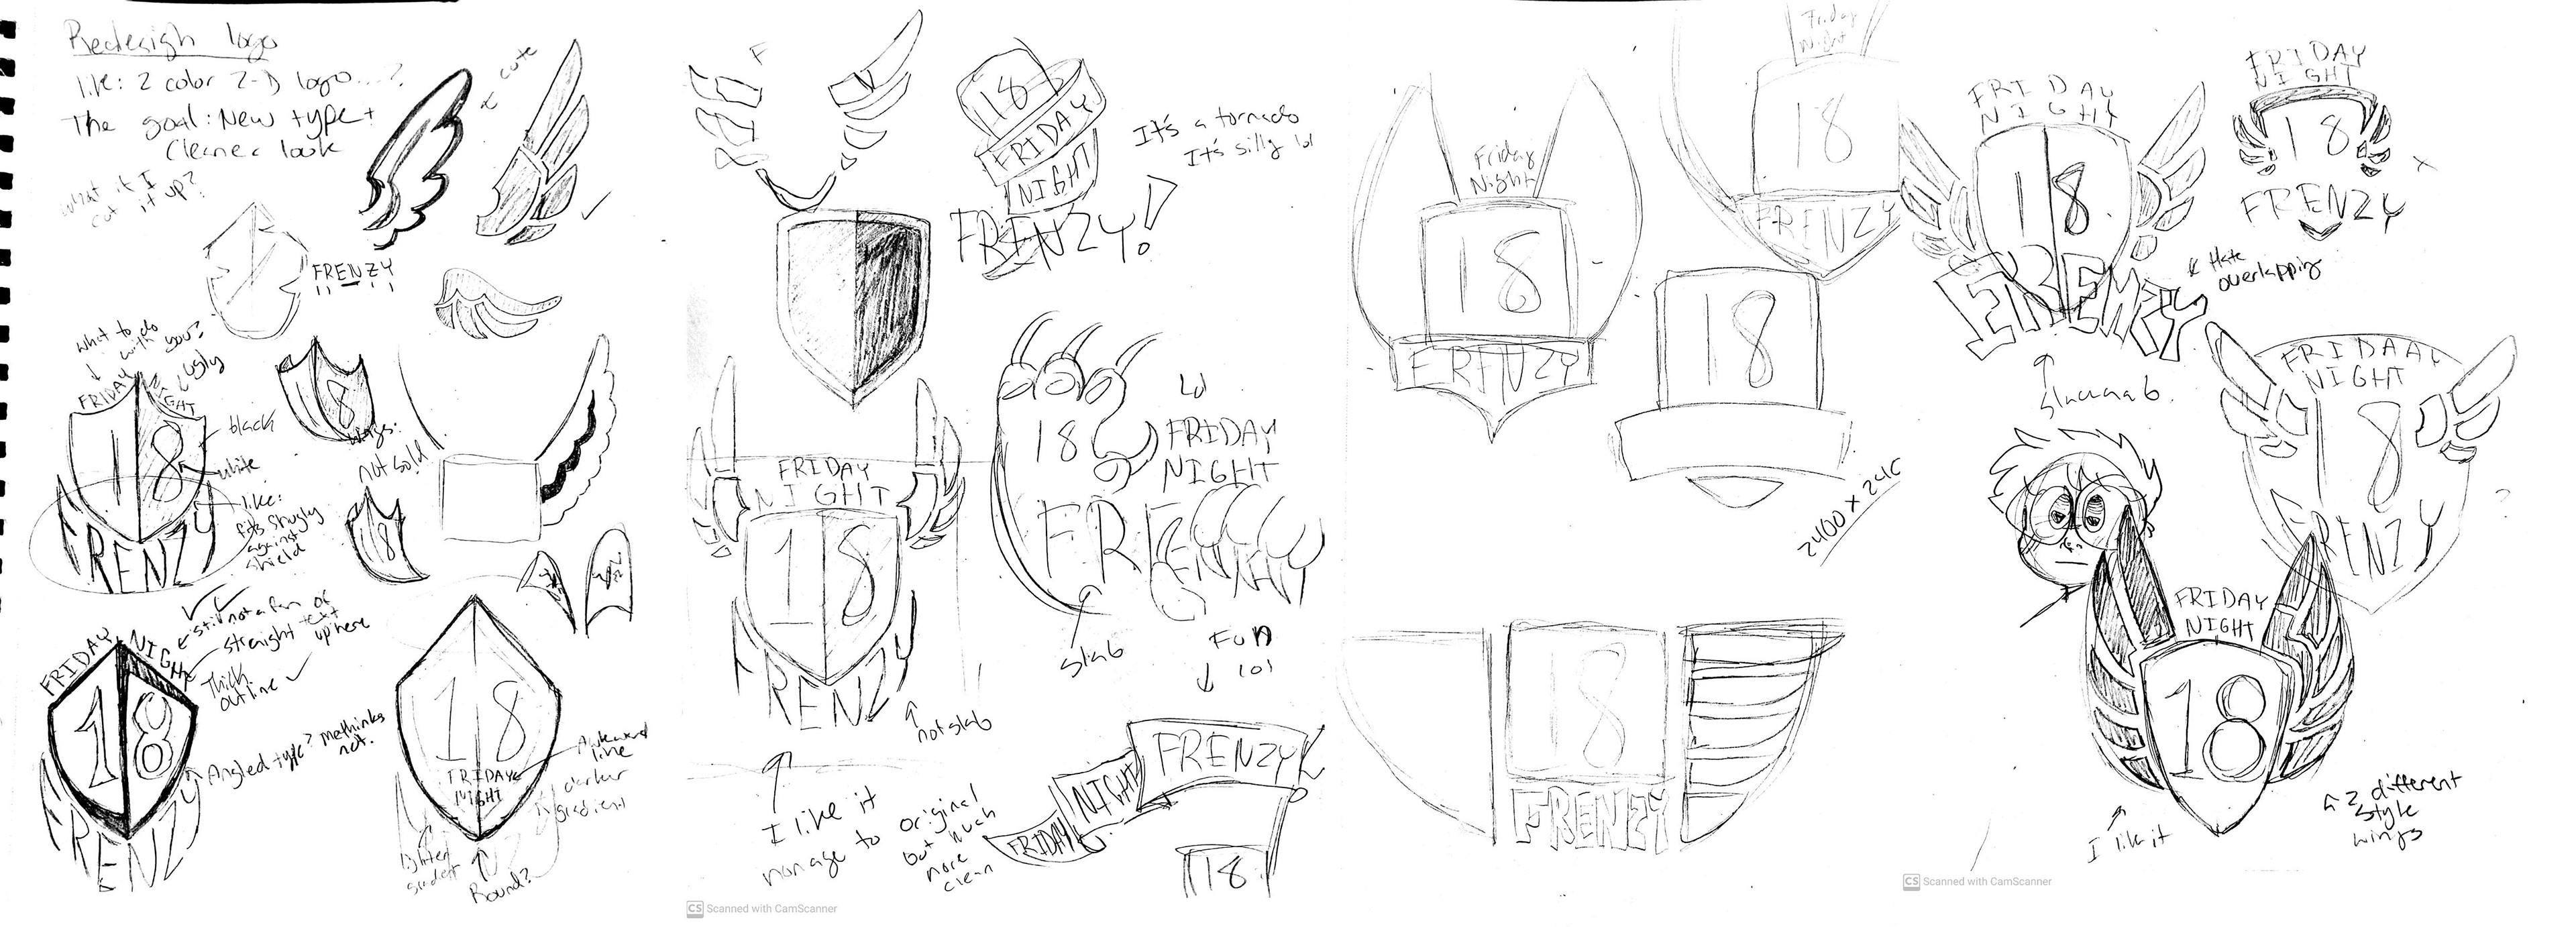 Redesign logo
like: 2 color 2-D logo...?
The goal: New type +
Cleaner look
what if I
cut it up?
FRENZY
← cute
what to do
with you?
← ugly
FRIDAY
NIGHT
18
black
white
like:
fits snugly
against
shield
FRENZY
8
wings:
not solid
18
← still not a fan of
straight text
up here
FRIDAY
NIGHT
Thick
outline ✓
18
Angled type? methinks
not.
FRENZY
18
FRIDAY
NIGHT
Awkward
line
darker
gradient
lighter
gradient
Round?
F
18
FRIDAY
NIGHT
FRENZY!
It's a tornado
It's silly lol
FRIDAY
NIGHT
18
FRENZY
not slab
I like it
homage to original
but much
more
clean
18
lol
FRIDAY
NIGHT
FRENZY
slab
Fun
lol
FRIDAY
NIGHT
FRENZY
18
CS Scanned with CamScanner
Friday
Night
18
FRENZY
Friday
Night
18
FRENZY
18
18
FRENZY
FRIDAY
NIGHT
18
FRENZY
← Hate
overlapping
FRIDAY
NIGHT
18
FRENZY
FRIDAAY
NIGHT
8
FRENZY
?
FRIDAY
NIGHT
18
I like it
2 different
style
wings
CS Scanned with CamScanner